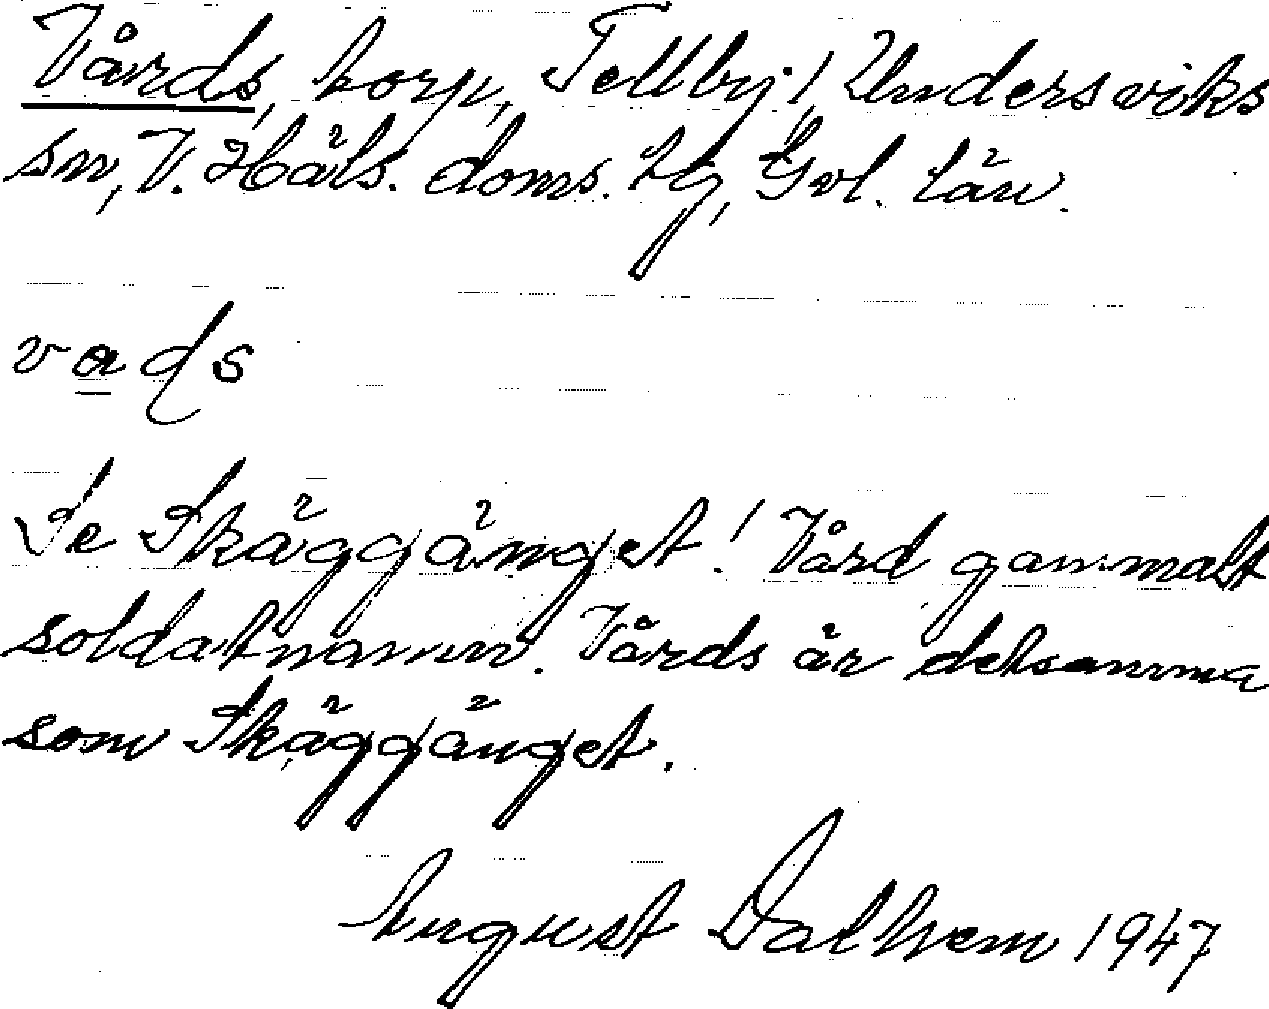 Vårds, torp, Tellby, Undersviks
sn, V. Häls. doms. hg, Gvl. län.
vaɖs
Se Skäggänget! Vård gammalt
soldatnamn. Vårds är detsamma
som Skäggänget.
August Dalhem 1947